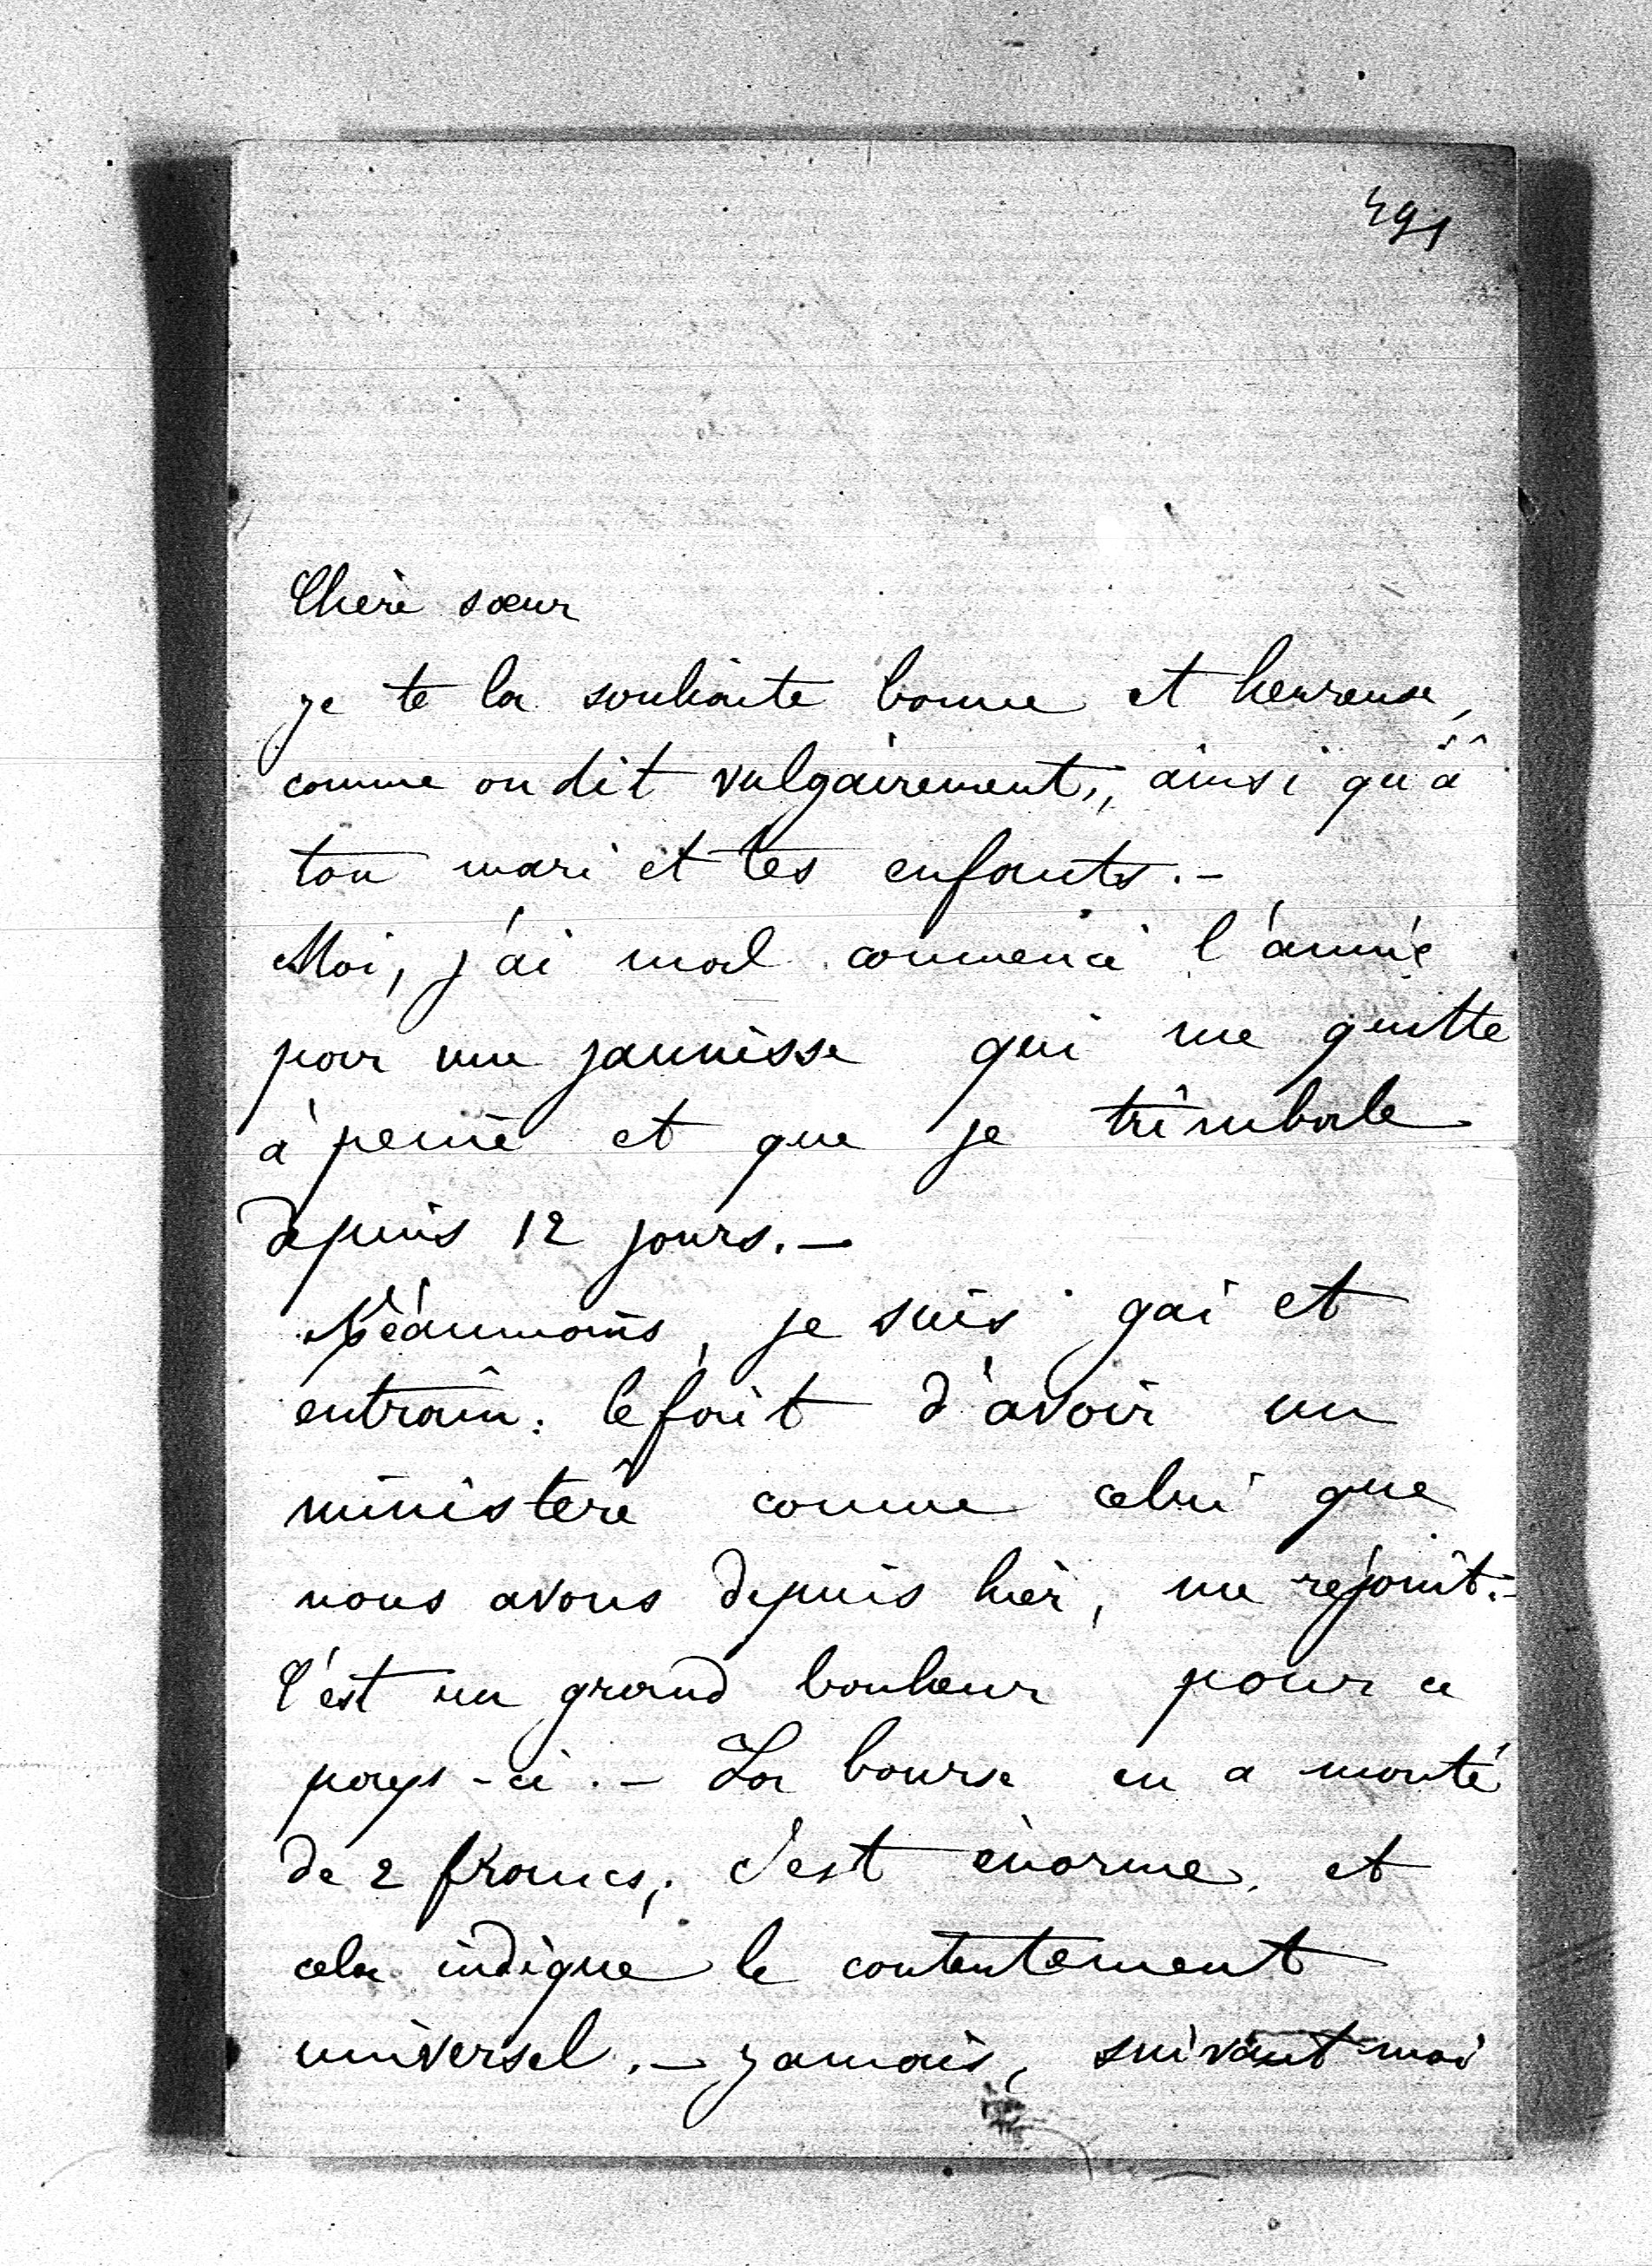 491
Chère sœur
je te la souhaite bonne et heureuse,
comme on dit vulgairement, ainsi qu'à
ton mari et tes enfants.-
Moi, j'ai mal commencé l'année
par une jaunisse qui me quitte
à peine et que je trimbale
depuis 12 jours.-
Néanmoins, je suis gai et
entrain: le fait d'avoir un
ministère comme celui que
nous avons depuis hier, me réjouit.-
C'est un grand bonheur pour ce
pays-ci.- La bourse en a monté
de 2 francs; c'est énorme et
cela indique le contentement
universel.- jamais, suivant moi